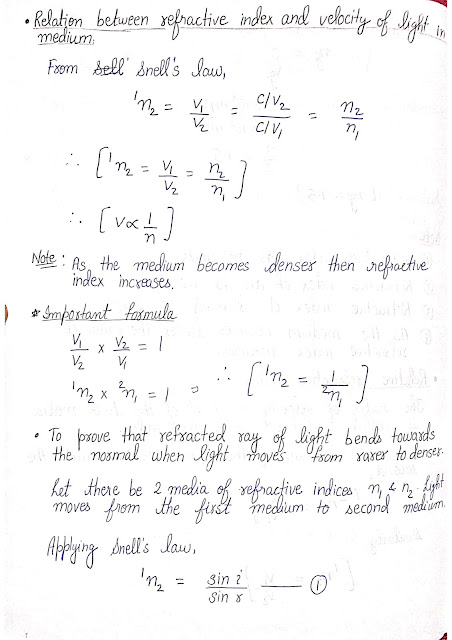 • Relation between refractive index and velocity of light in
medium:
From Sell' Snell's law,
¹n₂ = V₁/V₂ = C/V₂ / C/V₁ = n₂/n₁
∴ [ ¹n₂ = V₁/V₂ = n₂/n₁ ]
∴ [ V ∝ 1/n ]
Note : As the medium becomes denser then refractive
index increases.
* Important formula
V₁/V₂ × V₂/V₁ = 1
¹n₂ × ²n₁ = 1 ⇒ ∴ [ ¹n₂ = 1/²n₁ ]
• To prove that refracted ray of light bends towards
the normal when light moves from rarer to denser.
Let there be 2 media of refractive indices n₁ & n₂. Light
moves from the first medium to second medium.
Applying Snell's law,
¹n₂ = sin i / sin r —— ①